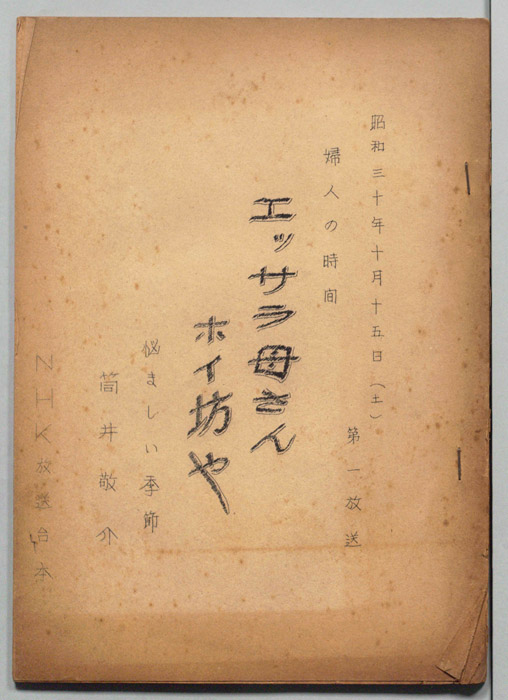 昭和三十年十月十五日（土）
第一放送
婦人の時间
エッサラ母さん
ホイ坊や
悩ましい季節
筒井敬介
NHK放送台本